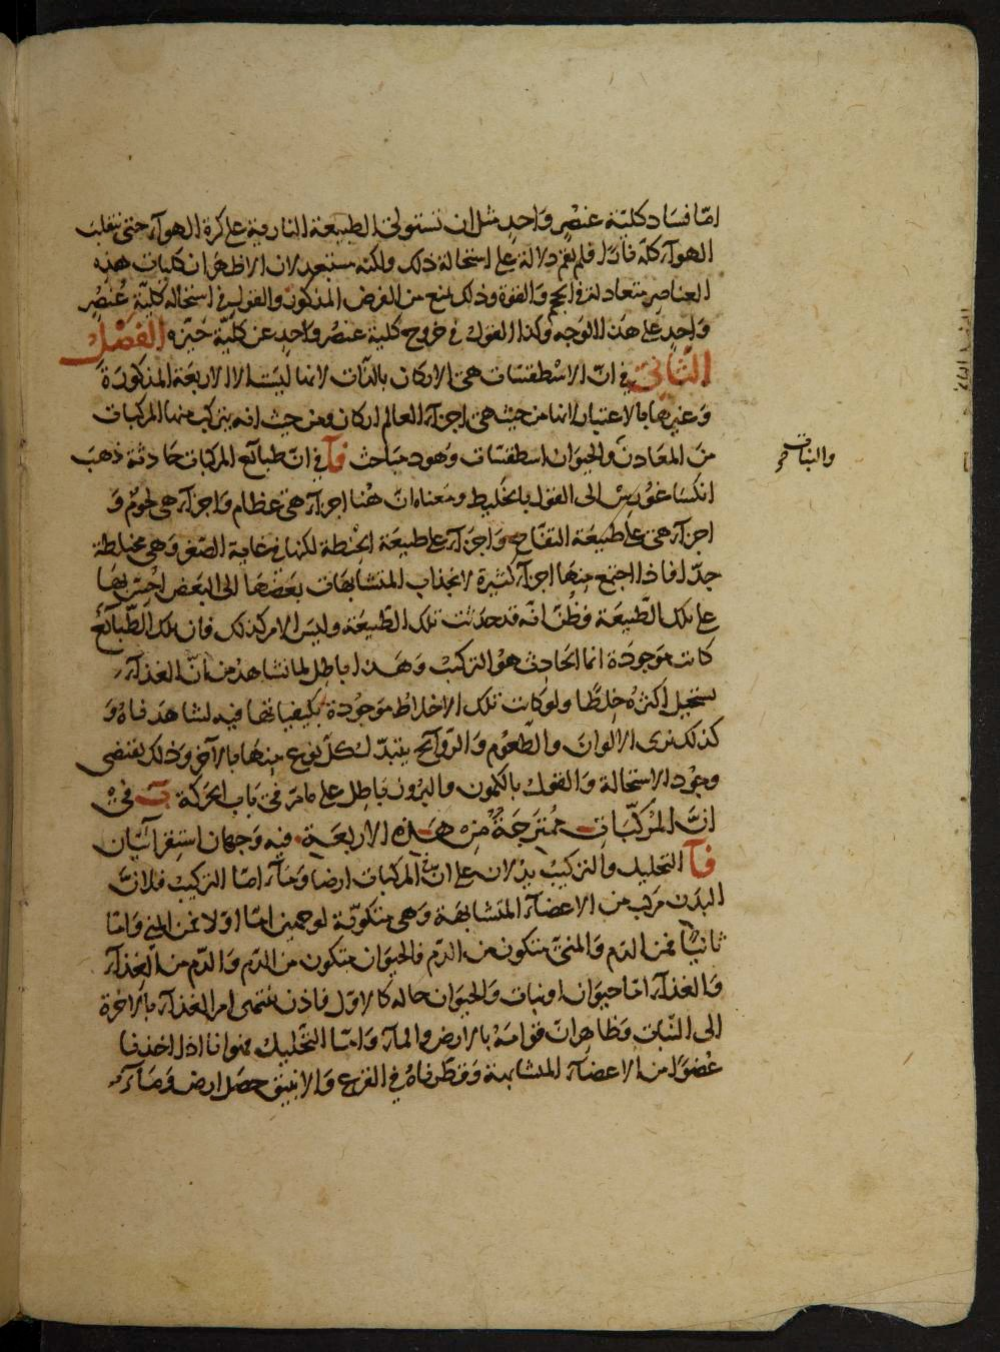 امّا فساد كليّة عنصر واحد مثل ان تستولى الطبيعة النارية على كرة الهواء حتى ينقلب
الهواء كلّه نارا فلم يقم دلالة على استحالة ذلك ولكنه مستبعد لان الاظهر ان كليات هذه
العناصر متعادلة في الحجم والقوة وذلك يمنع من الفرض المذكور والقول في استحالة كليّة عنصر
واحد على هذا الوجه وكذا القول في خروج كلية عنصر واحد عن كليّة حيّزه الفصل
الثاني في انّ الاسطقسات هي الاركان بالذات لانها ليست الا الاربعة المذكورة
وغيرها بالاعتبار انها من حيث هي اجزاء العالم اركان ومن حيث انه يتركب منها المركبات
من المعادن والحيوان اسطقسات وهو د مباحث فآ في انّ طبائع المركبات حادثة ذهب
والنبات
انكساغورس الى القول بالخليط ومعناه انّ هنا اجزاء هي عظام واجزاء هي لحوم و
اجزاء هي على طبيعة التفاح واجزاء على طبيعة الحنطة لكنها في غاية الصغر وهي مختلطة
جدّا فاذا اجتمع منها اجزاء كثيرة لانجذاب المتشابهات بعضها الى البعض احسّ بها
على تلك الطّبيعة فظنّ انّه قد حدثت تلك الطّبيعة وليس الامر كذلك فان تلك الطّبائع
كانت موجودة انما الحادث هو التركيب وهذا باطل لما نشاهد من انّ الغذاء
يستحيل اكثره خلطًا ولو كانت تلك الاخلاط موجودة بكيفياتها فيه لشاهدناه و
كذلك نرى الالوان والطّعوم والرّوائح يتبدّل كلّ نوع منها بالآخر وذلك يقتضى
وجود الاستحالة والقول بالكمون والبروز باطل على ما مرّ في باب الحركة ب في
انّ المركّبات ممتزجة من هذه الاربعة فيه وجهان استقرائيّان
فآ التحليل والتركيب يدلان على ان في المركبات ارضا وماء امّا التركيب فلانّ
البدن مركب من الاعضاء المتشابهة وهي متكونة لوجهين امّا اوّلا فمن المني وامّا
ثانيًا فمن الدم والمنيّ متكون من الدّم فالحيوان متكون من الدّم والدّم من الغذاء
والغذاء امّا حيوان او نبات والحيوان حاله كالاوّل فاذن ينتهي امر الغذاء بالآخرة
الى النّبات وظاهر انّ قوامه بالارض والماء وامّا التّحليل فهو انا اذا اخذنا
عضوًا من الاعضاء المتشابهة وقطّرناه في القرع والانبيق حصل ارض وماء